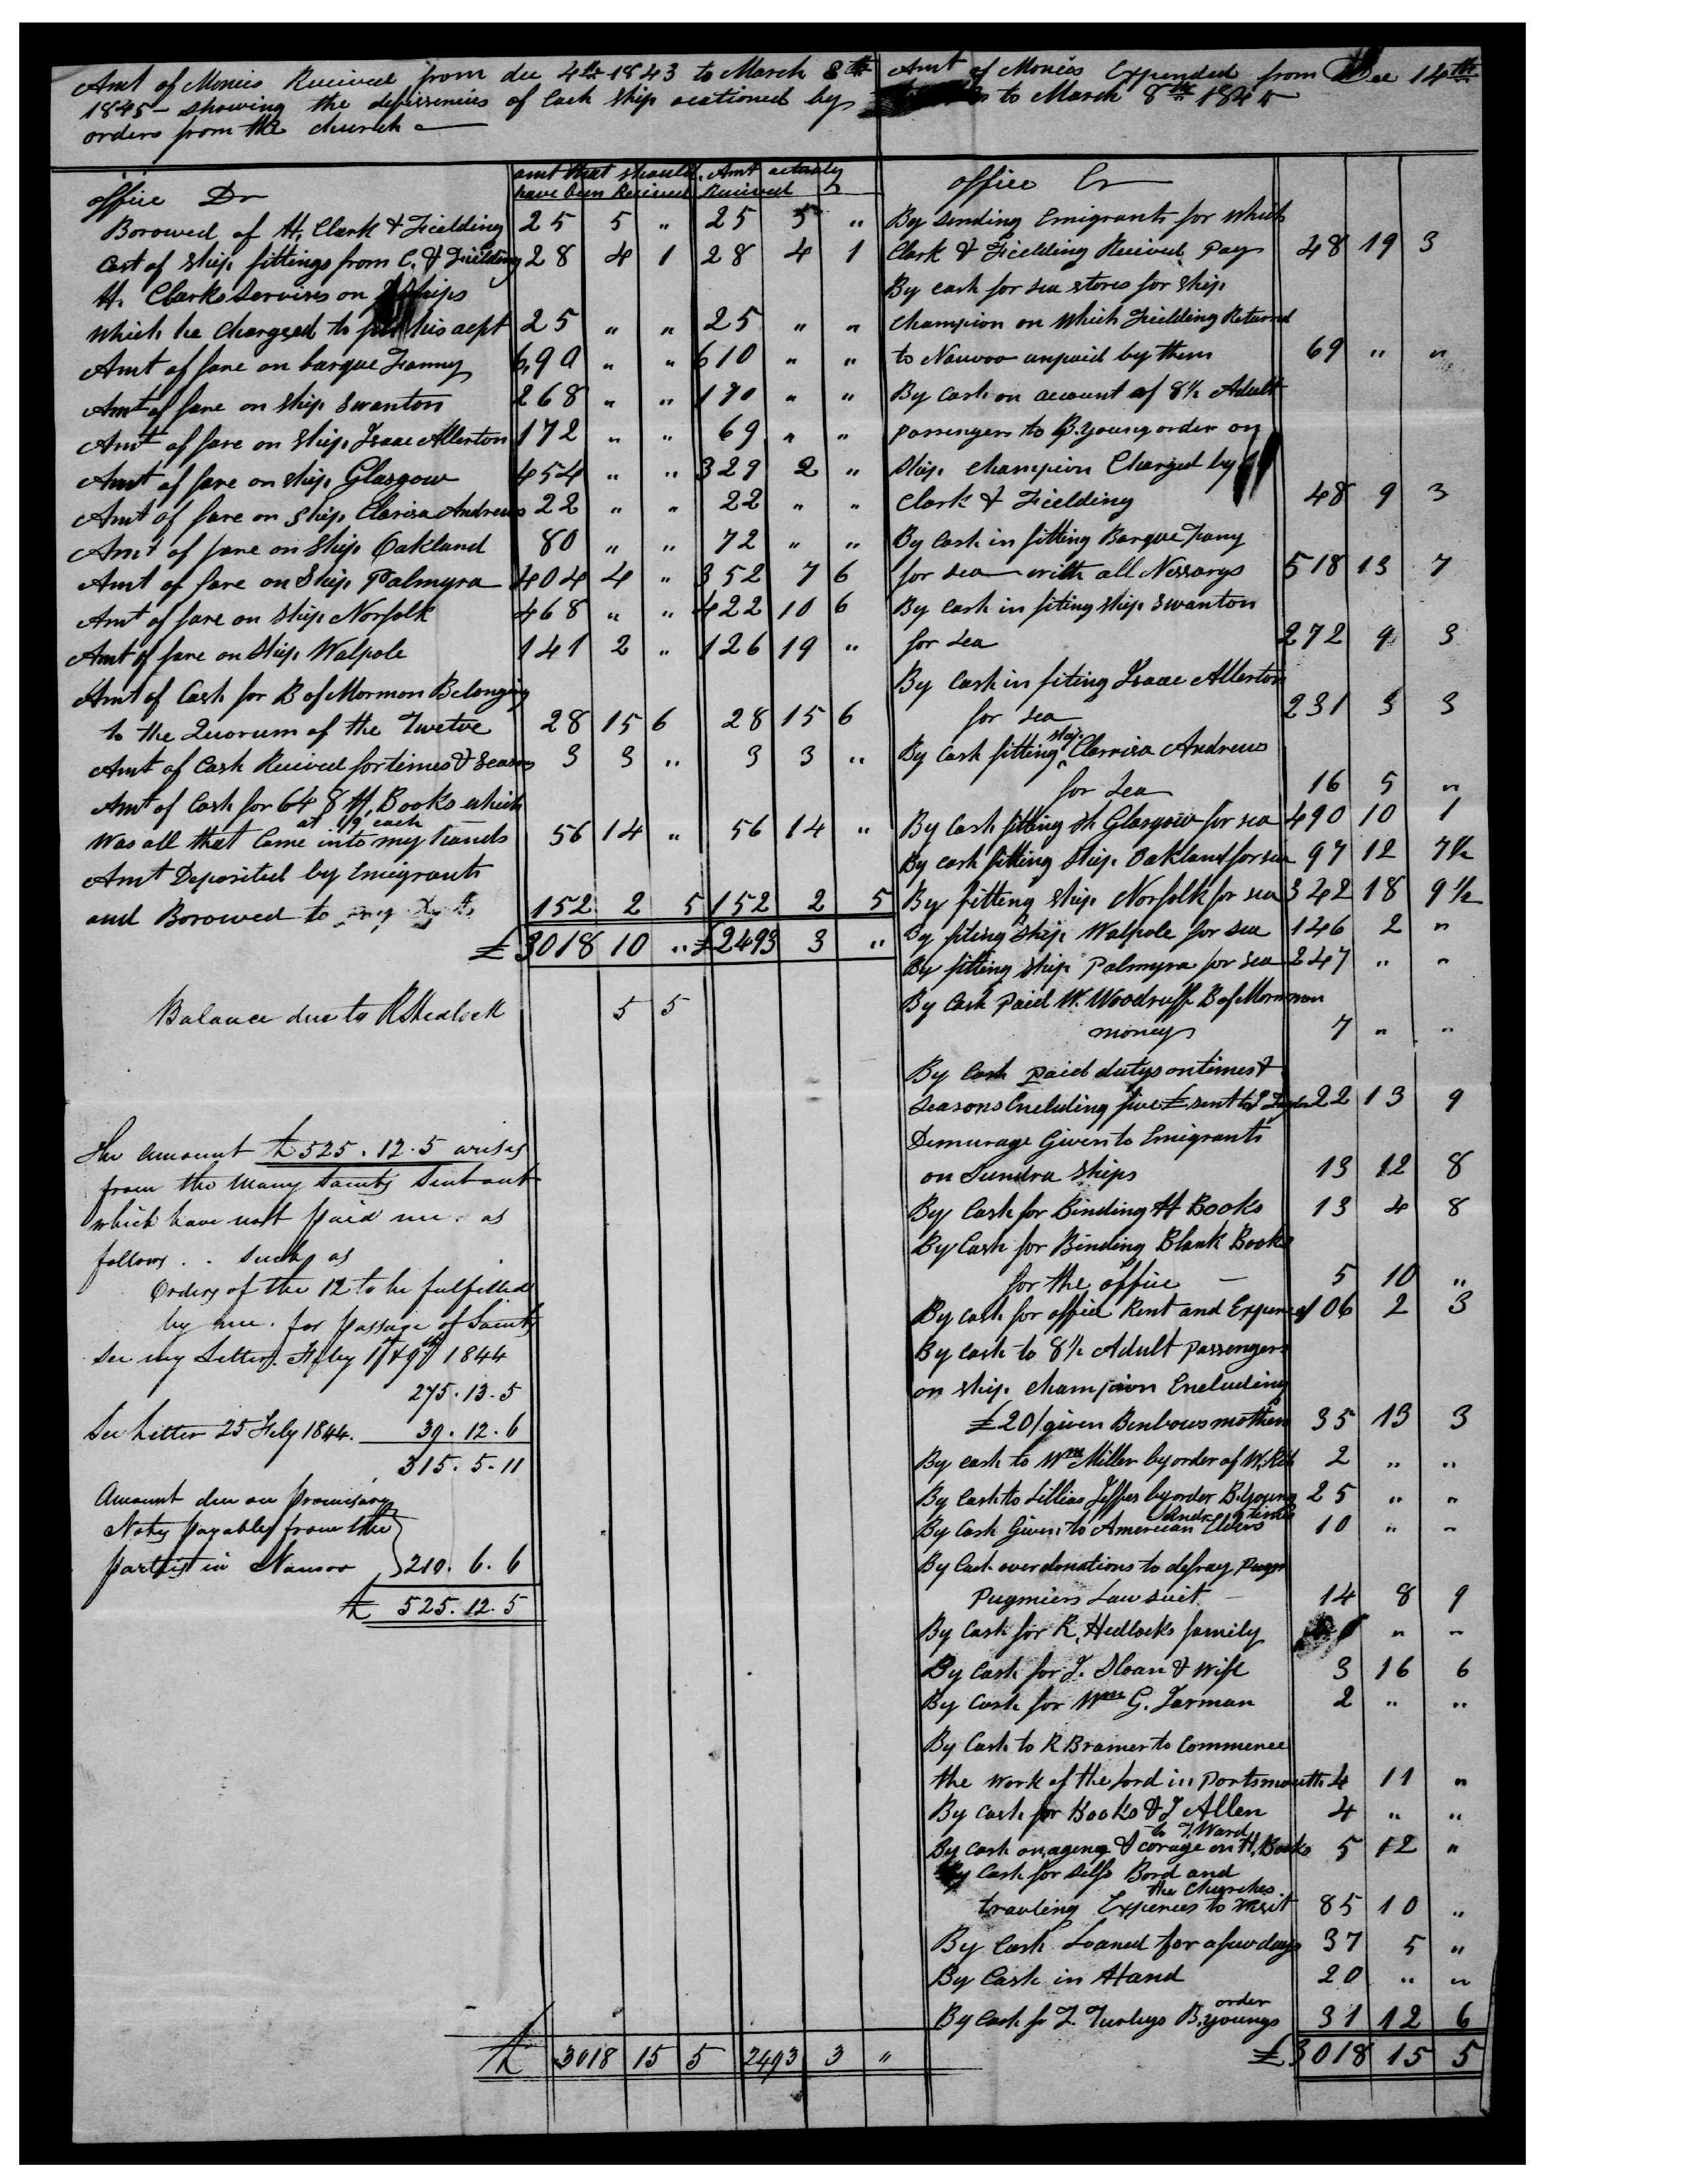 Amt of Monies Recieved from dec 4th 1843 to March 8th
1845 showing the defissencies of Each ship ocationed by
orders from the church
office Dr
amt that should have been Recieved
Amt actualy Recieved
Borowed of H. Clark & Fielding 25 5 " 25 5 "
Cost of Ship fittings from C. & Fielding 28 4 1 28 4 1
H. Clarks Servises on Ships
which he Chargeed to his acpt 25 " " 25 " "
Amt of fare on barque Fanny 690 " " 610 " "
Amt of fare on Ship Swanton 268 " " 170 " "
Amt of fare on Ship Isaac Allerton 172 " " 69 " "
Amt of fare on Ship Glasgow 454 " " 329 2 "
Amt of fare on Ship Clarisa Andrews 22 " " 22 " "
Amt of fare on Ship Oakland 80 " " 72 " "
Amt of fare on Ship Palmyra 404 4 " 352 7 6
Amt of fare on Ship Norfolk 468 " " 422 10 6
Amt of fare on Ship Walpole 141 2 " 126 19 "
Amt of Cash for B of Mormon Belonging
to the Quorum of the Twelve 28 15 6 28 15 6
Amt of Cash Recieved for times & Seasons 3 3 " 3 3 "
Amt of Cash for 648 H. Books which
at 1/9 each
Was all that Came into my hands 56 14 " 56 14 "
Amt Deposited by Emigrants
and Borowed to 152 2 5 152 2 5
£ 3018 10 " £ 2493 3 "
Balance due to R Hedlock 5 5
The amount £525.12.5 arises
from the many Saints Sent out
which have not paid me. as
follows . . such as
Orders of the 12 to be fulfilled
by me. for passage of Saints
See my Letters. Feby 1st & 9th 1844
275.13.5
See Letter 25 Feby 1844. 39.12.6
315.5.11
Amount due on Promisary
Notes payable from the
parties in Nauvoo 210.6.6
£ 525.12.5
£ 3018 15 5 2493 3 "
Amt of Monies Expended from Dec 14th
to March 8th 1845
office Cr
By sending Emigrants for which
Clark & Fielding Recieved Pay 48 19 3
By cash for sea stores for ship
Champion on which Fielding Returnd
to Nauvoo unpaid by them 69 " "
By Cash on account of 8½ Adult
passengers to B. Young order on
Ship Champion Charged by
Clark & Fielding 48 9 3
By Cash in fitting Barque Fany
for sea with all Nessarys 518 13 7
By Cash in fiting ship Swanton
for Sea 272 9 3
By Cash in fiting Isaac Allerton
for Sea 231 3 3
By Cash fitting ship Clarrisa Andrews
for Sea 16 5 "
By Cash fitting Sh Glasgow for sea 490 10 1
By cash fitting Ship Oakland for sea 97 12 7½
By fitteng ship Norfolk for sea 342 18 9½
By fiting Ship Walpole for sea 146 2 "
By fitting ship Palmyra for Sea 247 " "
By Cash paid W. Woodruff B of Mormmon
money 7 " "
By Cash paid dutys on times &
Seasons Encluding five £ sent to 22 13 9
Demurage Given to Emigrants
on Sundra Ships 13 12 8
By Cash for Binding H Books 13 4 8
By Cash for Binding Blank Books
for the office 5 10 "
By cash for office Rent and Expences 106 2 3
By Cash to 8½ Adult passengers
on ship Champion Encluding
£20/ given Benbows mothers 35 13 3
By cash to Wm Miller by order of W. 2 " "
By Cash to Lillias by order B. Young 25 " "
By Cash Given to American Elders 10 " "
By Cash over donations to defray
Pugmiers Law suit 14 8 9
By Cash for R. Hedlocks family " "
By Cash for J. Sloan & wife 3 16 6
By Cash for Wm G. Jarman 2 " "
By Cash to R Bramer to Commence
the Work of the Lord in Portsmouth 4 11 "
By Cash for Books & J Allen 4 " "
to T. Ward
By Cash on agency & corage on H. Books 5 12 "
By Cash for self Bord and
the Churches
travling Expences to visit 85 10 "
By Cash Loaned for a few days 37 5 "
By Cash in Hand 20 " "
By Cash for T. Turleys B. Youngs order 31 12 6
£ 3018 15 5